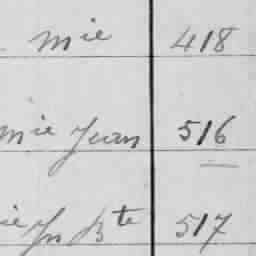 mie 418
mie Juan 516
ie Jn Bte 517